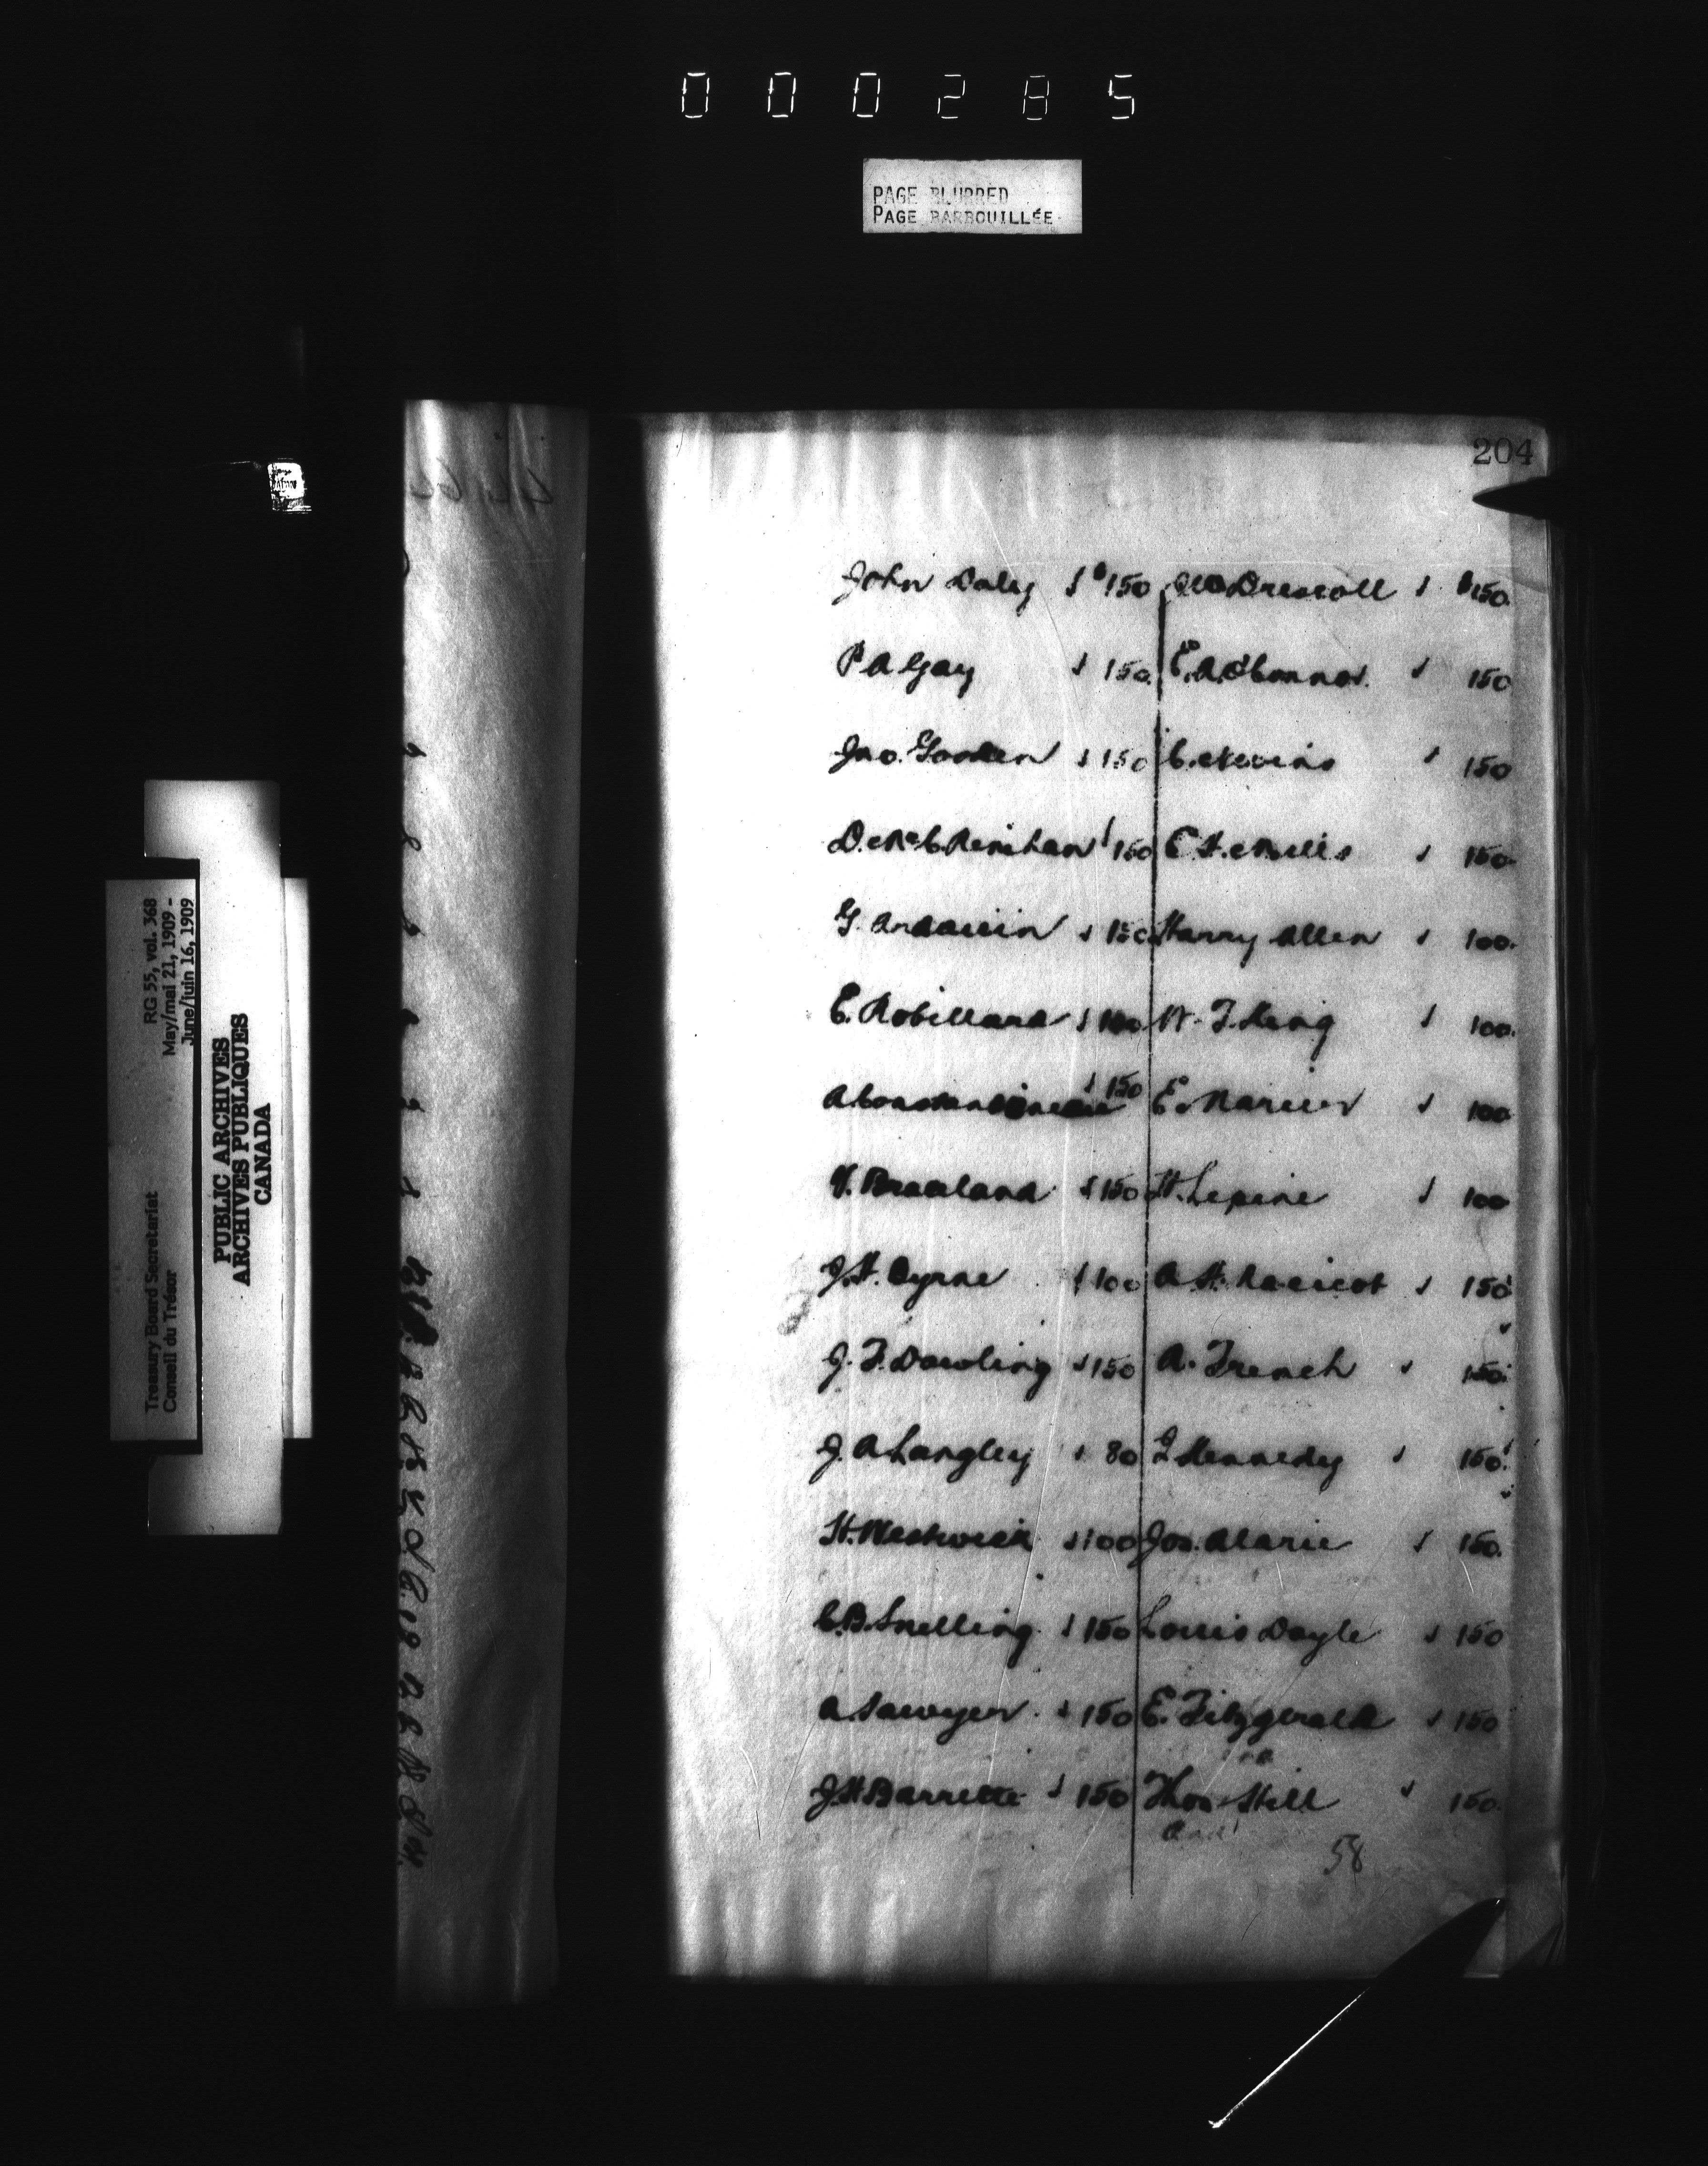 000285
PAGE BLURRED
PAGE BARBOUILLÉE
204
John Daly √ $150 Driscoll √ $150.
P A Gay √ 150. E. A. O'Connor. √ 150
Jno. Gooden √ 150 C. Nevins √ 150
D. McC. Renihan √ 150 C. H. Mills √ 150
G. Ardouin √ 150 Harry Allen √ 100.
E. Robillard √ 100 W. J. King √ 100.
A Constantineau √ 150 E. Marier √ 100
V. Braaland √ 150 H. Lepine √ 100
J. H. Byrne √ 100 A. H. Racicot √ 150
J. F. Dowling √ 150 A. French √ 150.
J. A Langley √ 80 J Kennedy √ 150.
H. Westwick √ 100 Jos. Alarie √ 150.
C. B. Snelling √ 150 Louis Doyle √ 150
A. Sawyer. √ 150 E. Fitzgerald √ 150
J H Barrette √ 150 Thos Hill √ 150.
58
Treasury Board Secretariat RG 55, vol. 368
Conseil du Trésor May/mai 21, 1909 -
June/juin 16, 1909
PUBLIC ARCHIVES
ARCHIVES PUBLIQUES
CANADA